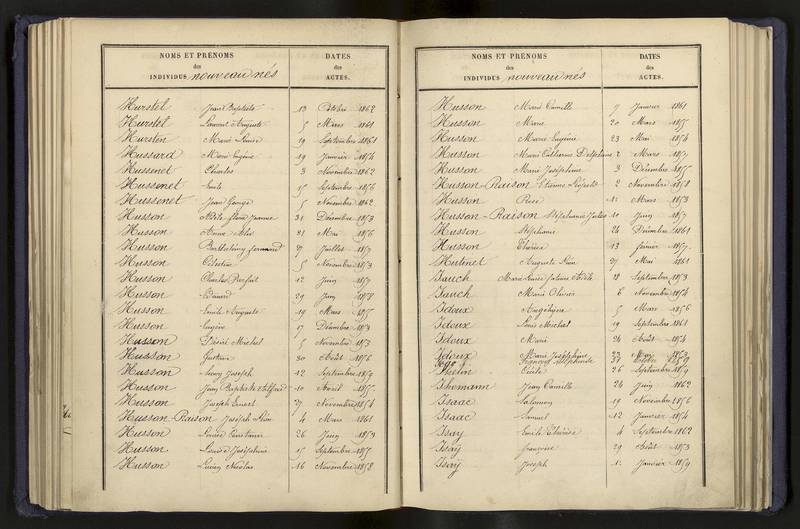 NOMS ET PRÉNOMS
des
INDIVIDUS nouveau nés
DATES
des
ACTES.
Hurstel Jean Baptiste 13 Octobre 1862
Hurstel Laurent Auguste 5 Mars 1861
Hursten Marie Louise 19 Septembre 1861
Hussard Marie Eugénie 19 Janvier 1854
Hussenet Charles 3 Novembre 1862
Hussenet Emile 15 Septembre 1856
Hussenot Jean George 5 Novembre 1862
Husson Jeanne 31 Décembre 1853
Husson Anne 21 Mai 1856
Husson Barthélémy 27 Juillet 1857
Husson Célestin 5 Novembre 1853
Husson Charles Parfait 12 Juin 1857
Husson Edouard 29 Juin 1858
Husson Emile Auguste 19 Mars 1855
Husson Eugène 17 Décembre 1853
Husson Désiré Michel 5 Novembre 1853
Husson Gustave 30 Août 1856
Husson Joseph 12 Septembre 1859
Husson Jean Baptiste Alfred 10 Avril 1855
Husson Joseph Ernest 27 Novembre 1854
Husson-Raison Joseph Léon 4 Mars 1861
Husson Louise Constance 26 Juin 1853
Husson Louise Joséphine 15 Septembre 1855
Husson Lucien Nicolas 16 Novembre 1858
NOMS ET PRÉNOMS
des
INDIVIDUS nouveau nés
DATES
des
ACTES.
Husson Marie Camille 7 Janvier 1861
Husson Marie 20 Mars 1855
Husson Marie Eugénie 23 Mai 1854
Husson Marie Catherine Delphine 2 Mars 1857
Husson Marie Joséphine 3 Décembre 1855
Husson-Raison Etienne 2 Novembre 1858
Husson Rose 11 Mars 1853
Husson-Raison Stéphanie Julie 10 Juin 1857
Husson Stéphanie 26 Décembre 1861
Husson Thérèse 13 Janvier 1857
Hutinet Auguste Léon 27 Mai 1861
Jauch Marie Louise Juliane 28 Septembre 1853
Jauch Marie Olivier 6 Novembre 1854
Idoux Angélique 5 Mars 1856
Idoux Louis Michel 19 Septembre 1861
Idoux Marie 26 Août 1854
Idoux Marie Joséphine 22
Cécile 26 Septembre 1859
Ihomann Jean Camille 24 Juin 1862
Isaac Salomon 19 Novembre 1856
Isaac Samuel 12 Janvier 1854
Isay Emile 4 Septembre 1862
Isaÿ Françoise 29 Août 1853
Isaÿ Joseph 11 Janvier 1859